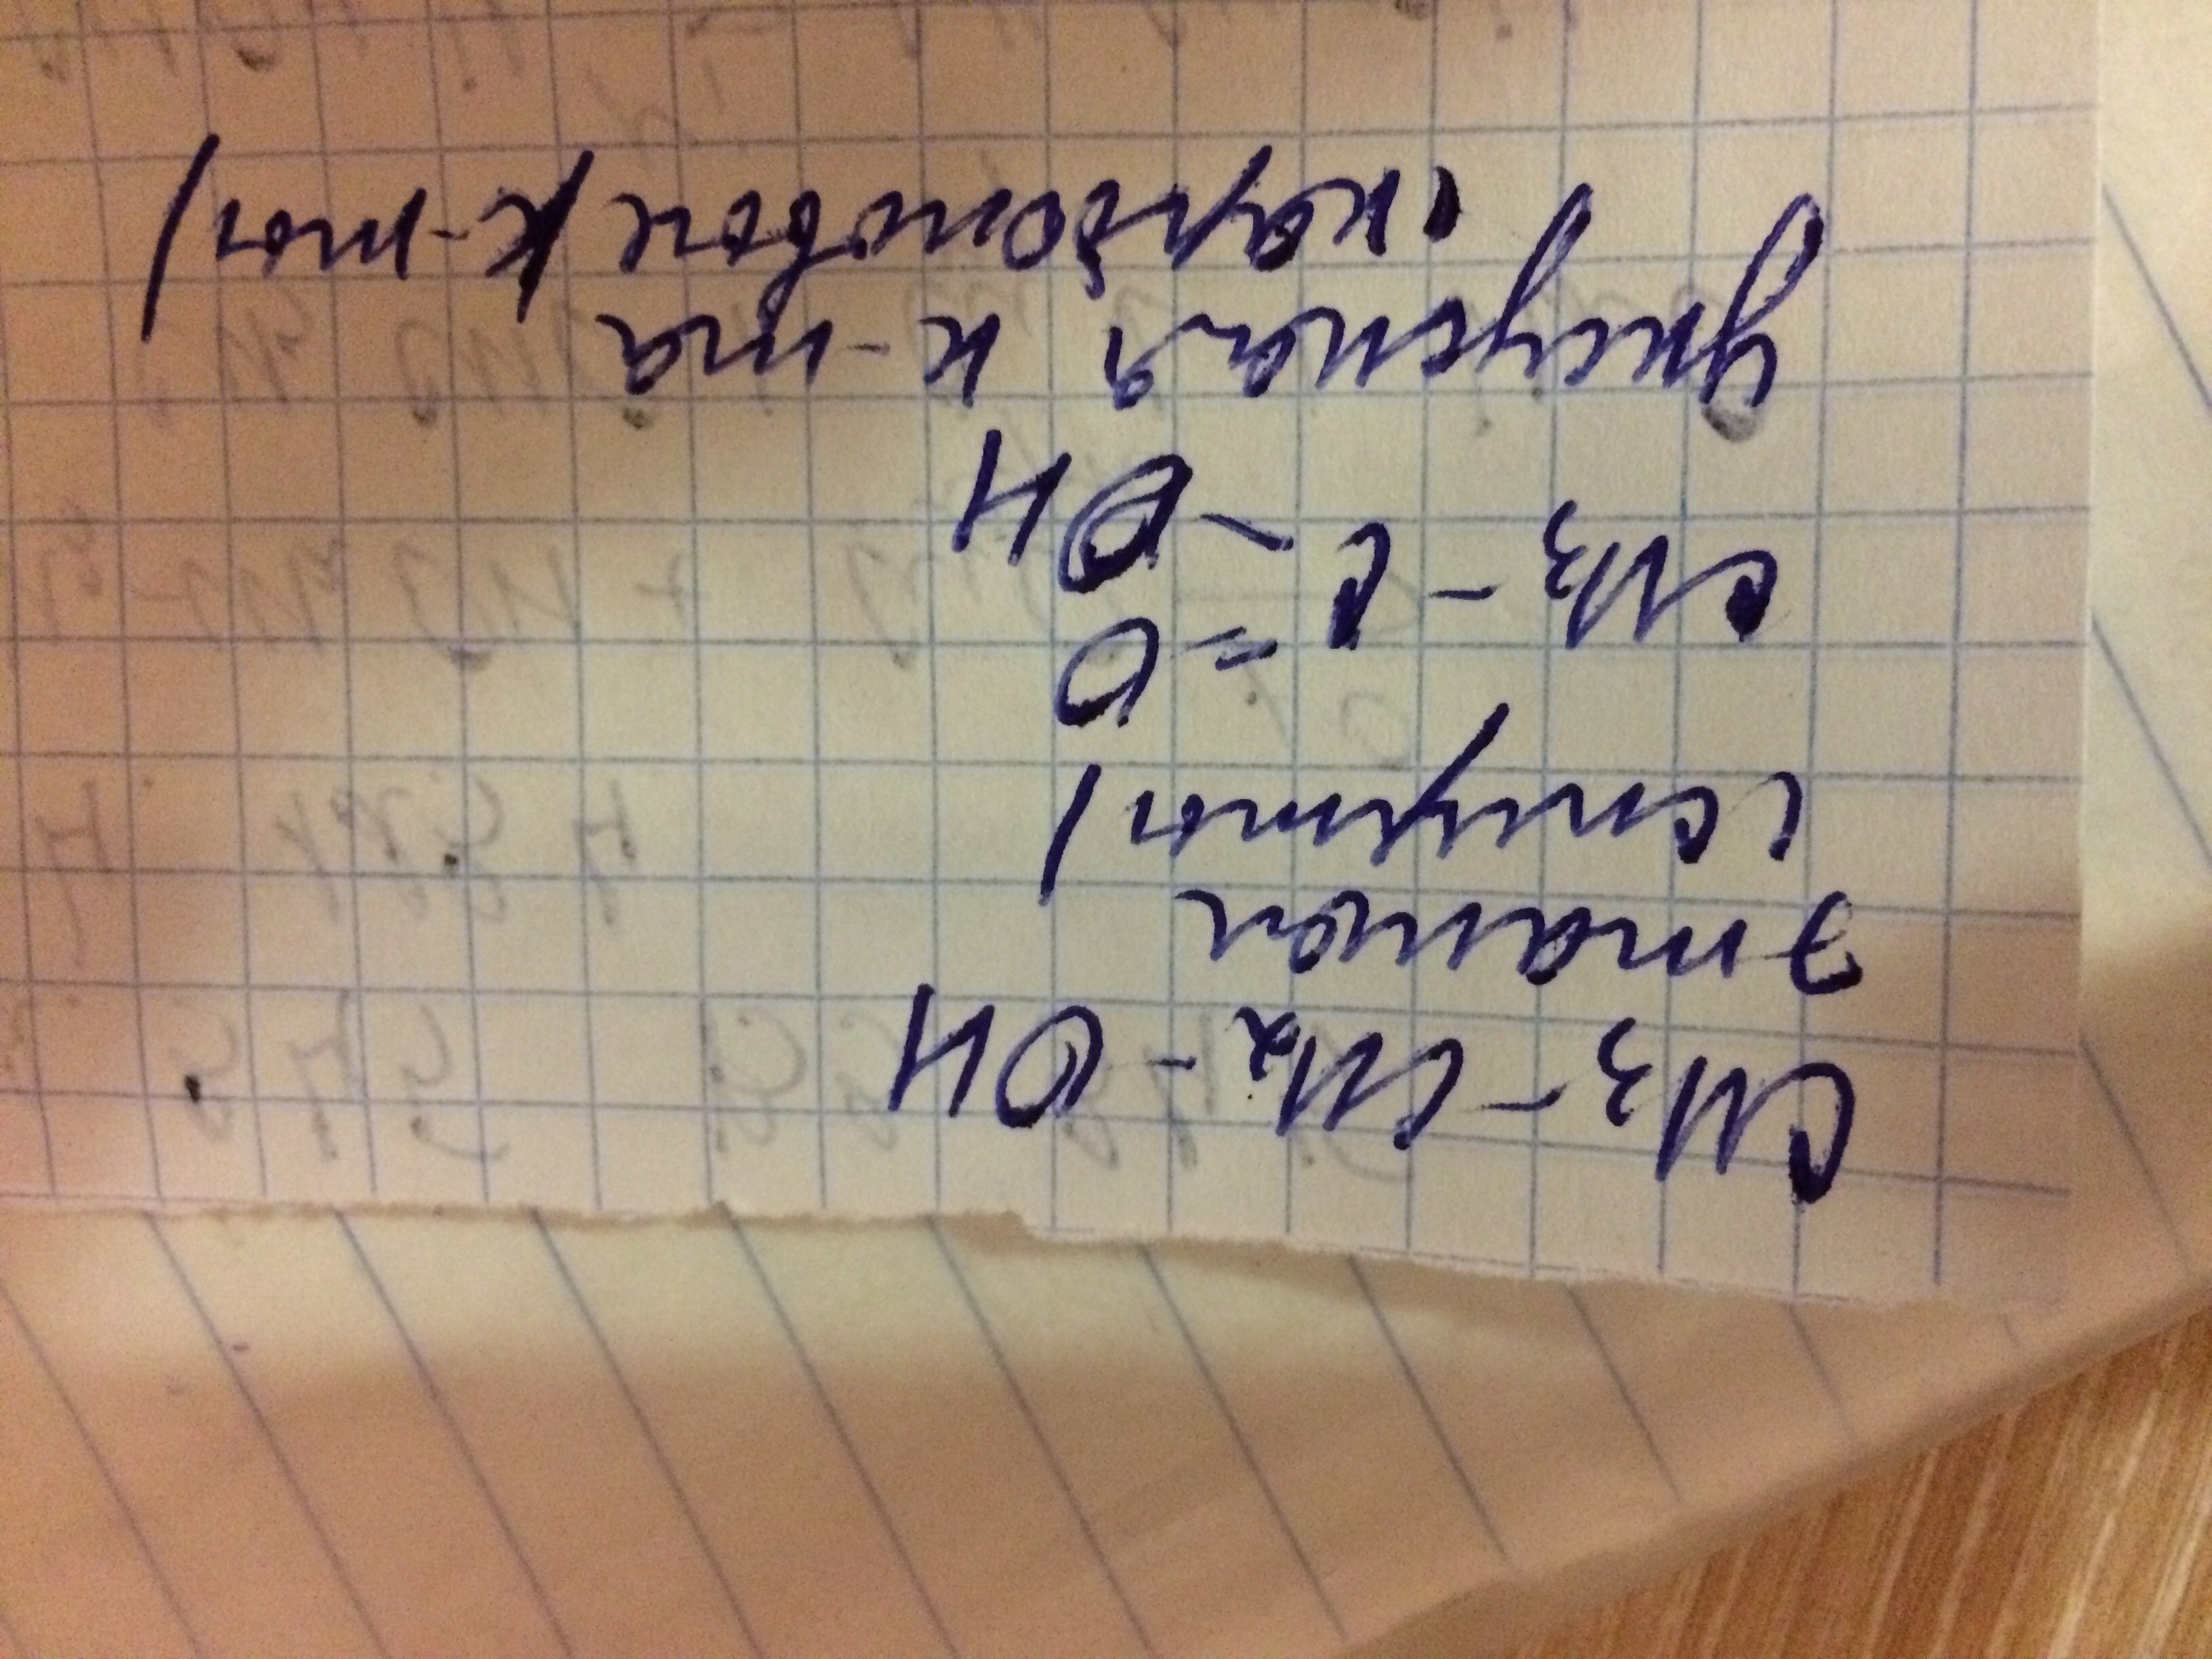 CH3-CH2-OH
этанол
(спирты)
=O
CH3-C-OH
Уксусная к-та
(карбоновые к-ты)